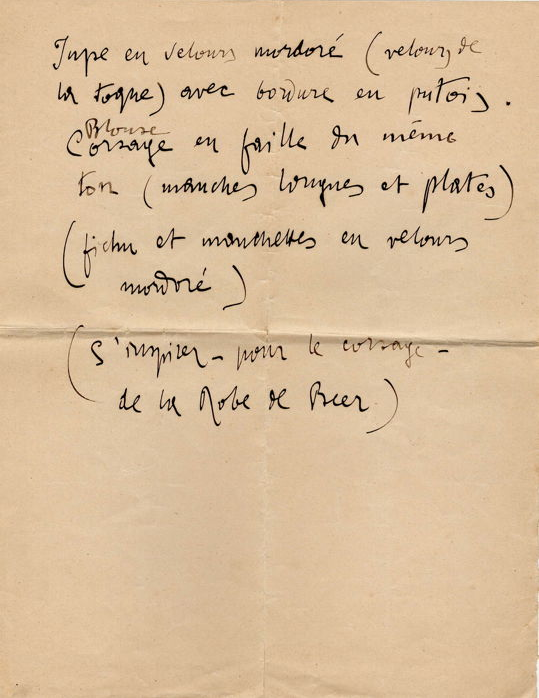 Jupe en velours mordoré (velours de
la toque) avec bordure en putois.
Blouse
Corsage en faille du même
ton (manches longues et plates)
(fichu et manchettes en velours
mordoré)
(S'inspirer - pour le corsage -
de la Robe de Beer)